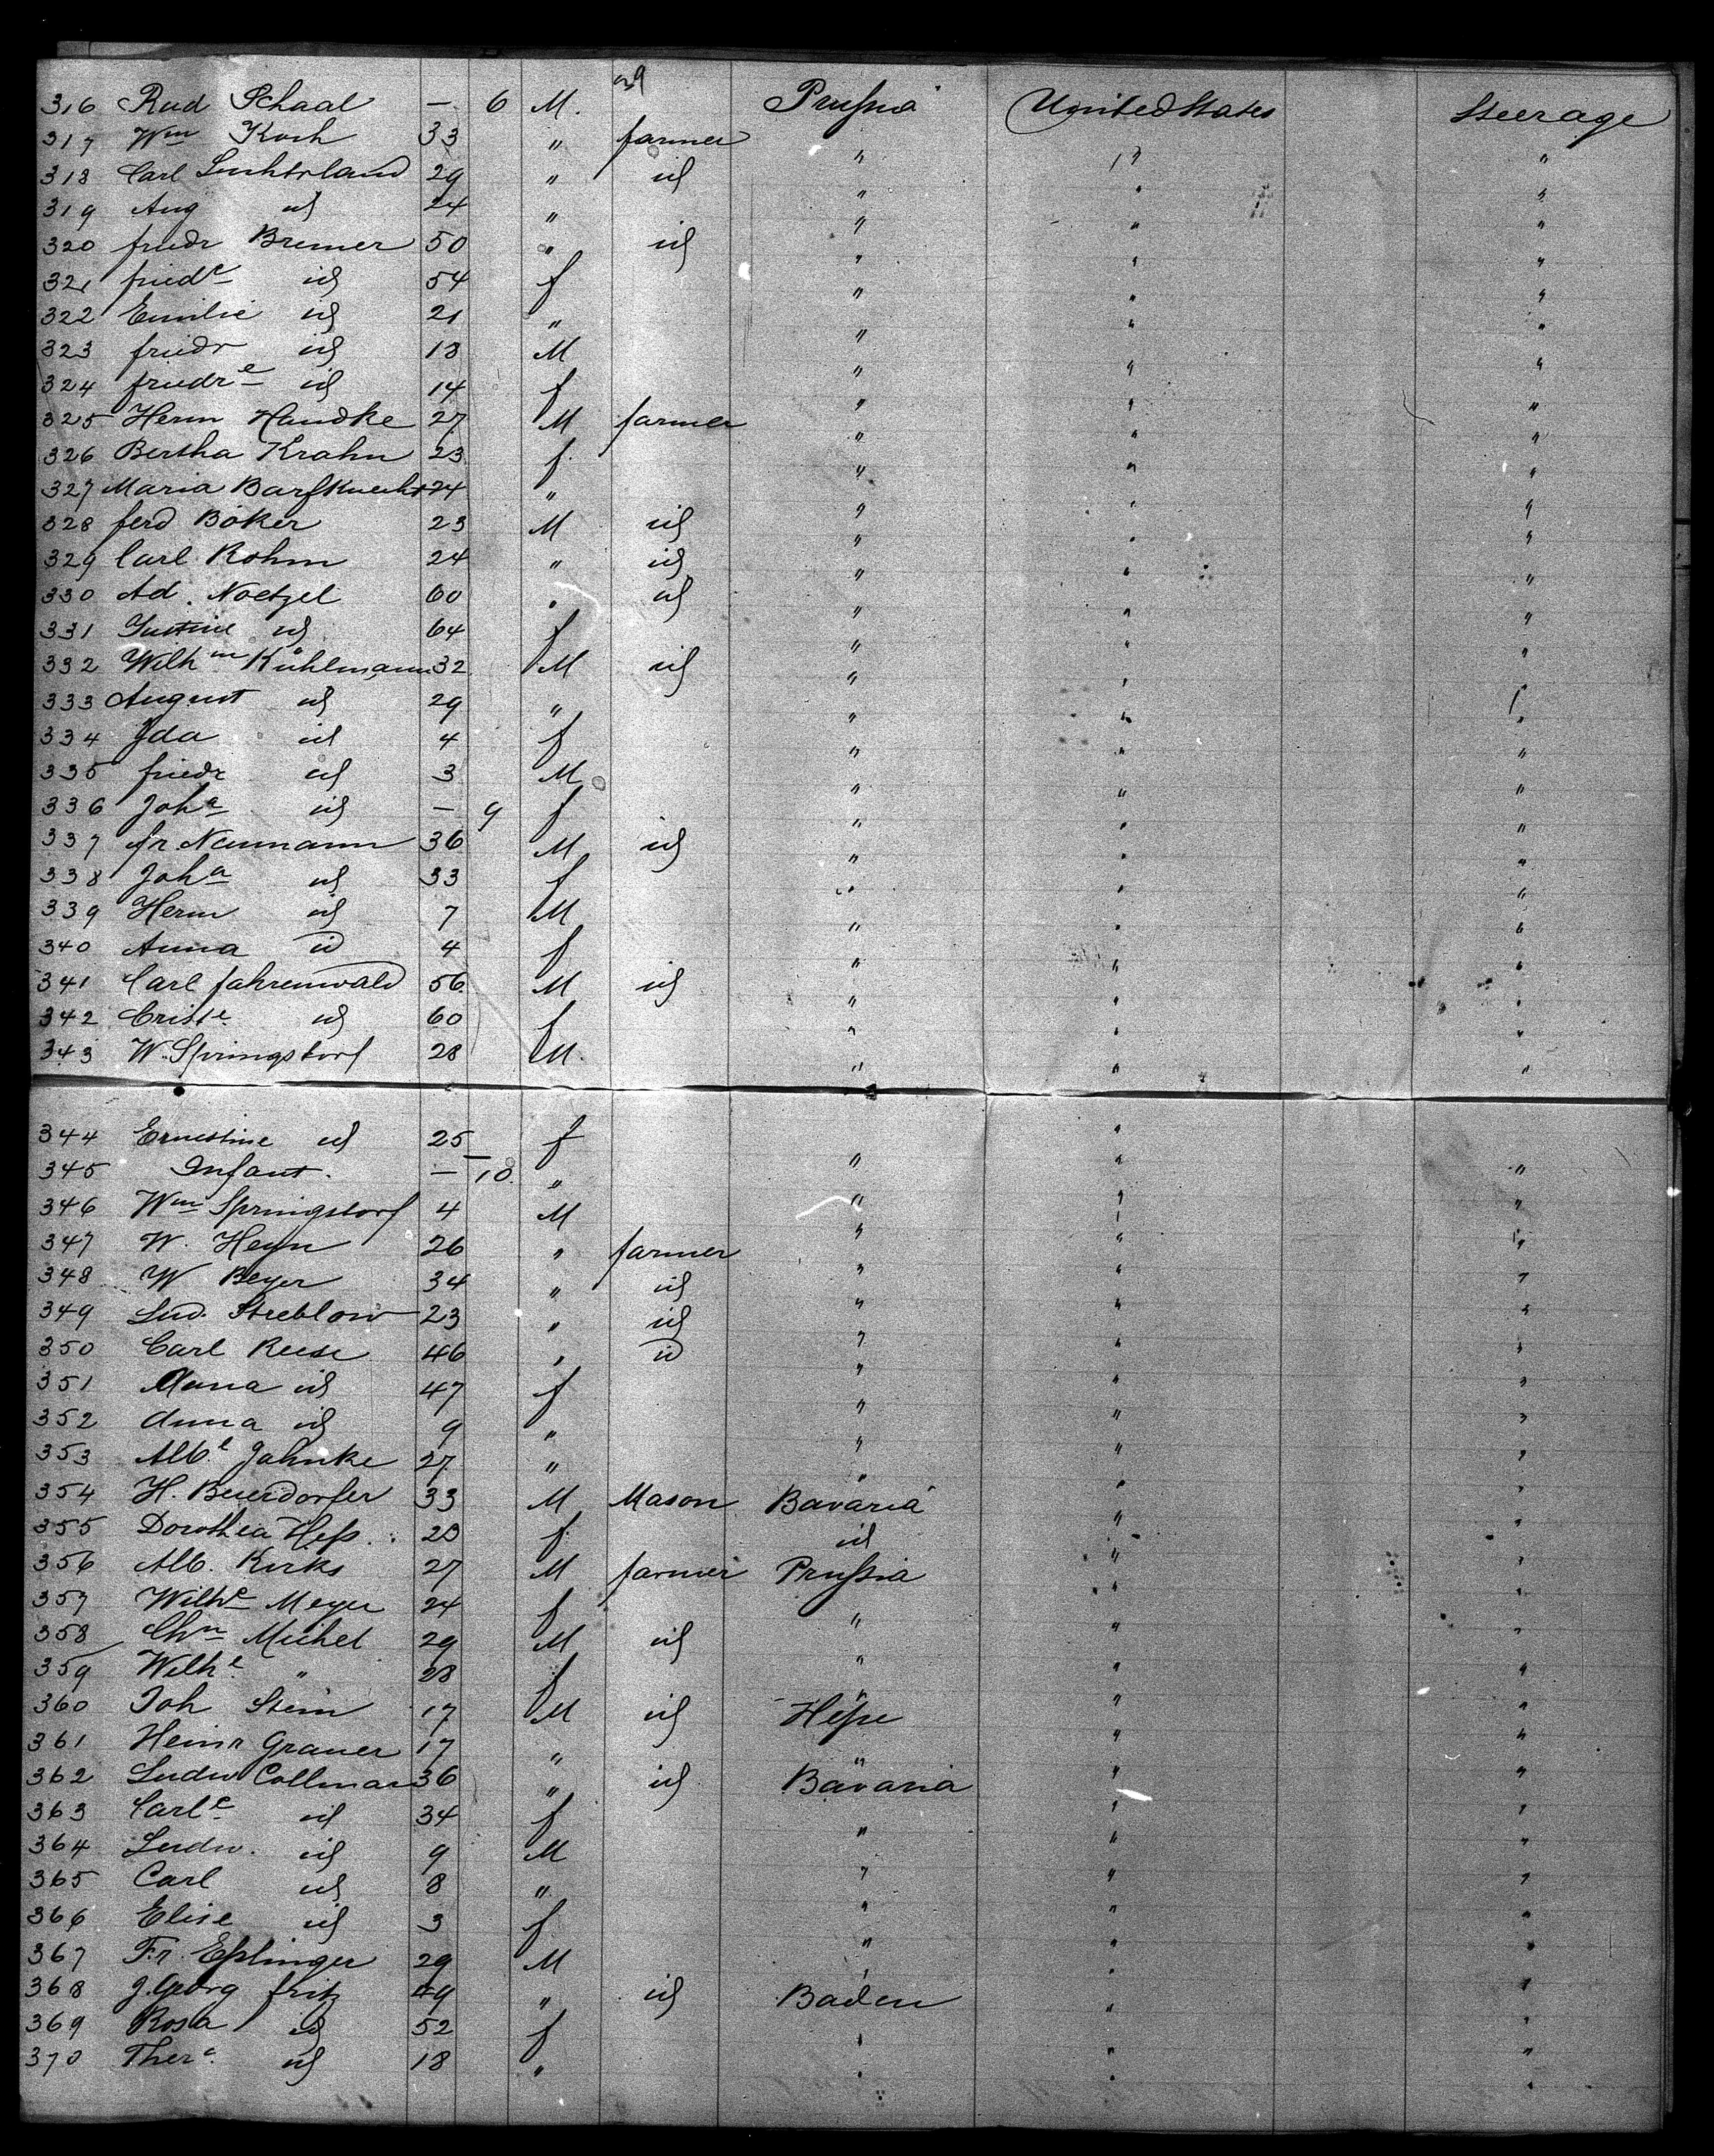 316 Rud Schaal — 6 M. Prussia United States Steerage
317 Wm Koch 33 " farmer " " "
318 Carl Luchterland 29 " id " " "
319 Aug id 24 " " " "
320 friedr Bremer 50 " id " " "
321 fried e id 54 f " " "
322 Emilie id 21 " " " "
323 friedr id 18 M " " "
324 friedr e id 14 f " " "
325 Herm Handke 27 M farmer " " "
326 Bertha Krahn 23 f " " "
327 Maria Barfknecht 24 " " " "
328 ferd Böker 23 M id " " "
329 Carl Rohm 24 " id " " "
330 Ad. Noetzel 60 " id " " "
331 Justine id 64 f " " "
332 Wilh m Kühlmann 32 M id " " "
333 August id 29 " " " "
334 Ida id 4 f " " "
335 friedr id 3 M " " "
336 Joh a id — 9 f " " "
337 fr Neumann 36 M id " " "
338 Joh a id 33 f " " "
339 Herm id 7 M " " "
340 Anna id 4 f " " "
341 Carl fahrenwald 56 M id " " "
342 Crist e id 60 f " " "
343 W. Springstorf 28 M. " " "
344 Ernestine id 25 f " " "
345 Infant. — 10 " " " "
346 Wm Springstorf 4 M " " "
347 W. Heyn 26 " farmer " " "
348 W Beyer 34 " id " " "
349 Lud. Streblow 23 " id " " "
350 Carl Reese 46 " id " " "
351 Maria id 47 f " " "
352 Anna id 9 " " " "
353 Alb e Jahnke 27 " " " "
354 H. Beierdorfer 33 M Mason Bavaria " "
355 Dorothea Hess 23 f id " "
356 Alb. Kirks 27 M farmer Prussia " "
357 Wilh e Meyer 24 f " " "
358 Chn Michel 29 M id " " "
359 Wilh e " 28 f " " "
360 Joh Stein 17 M id Hesse " "
361 Heinr Grauer 17 " " " "
362 Ludw Collmar 36 " id Bavaria " "
363 Carl e id 34 f " " "
364 Ludw. id 9 M " " "
365 Carl id 8 " " " "
366 Elise id 3 f " " "
367 Fr. Esslinger 29 M " " "
368 J. Georg fritz 49 " id Baden " "
369 Rosa id 52 f " " "
370 Ther e id 18 " " " "